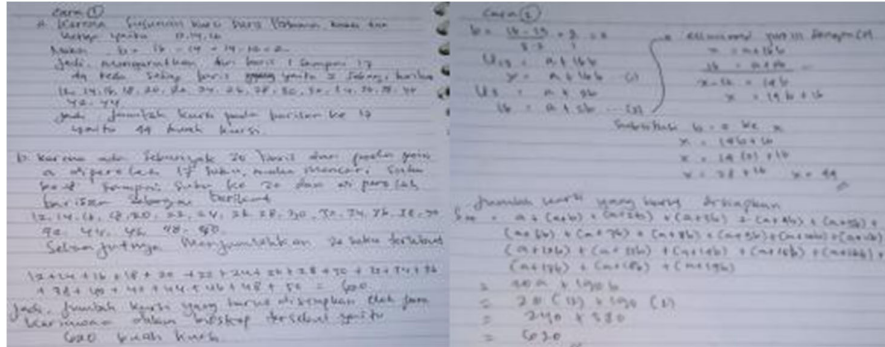 Cara ①
a. Karena susunan kursi baris
yaitu 12, 14, 16
Maka b = 16 - 14 = 14 - 12 = 2
Jadi, mengurutkan dari baris 1 sampai 17
dg beda setiap baris yaitu 2 sebagai berikut
12, 14, 16, 18, 20, 22, 24, 26, 28, 30, 32, 34, 36, 38, 40
42, 44
Jadi jumlah kursi pada barisan ke 17
yaitu 44 buah kursi.
b. Karena ada sebanyak 20 baris dan pada poin
a diperoleh 17 suku, maka mencari suku
sampai suku ke 20 dan diperoleh
barisan sebagai berikut
12, 14, 16, 18, 20, 22, 24, 26, 28, 30, 32, 34, 36, 38, 40
42, 44, 46, 48, 50
Selanjutnya menjumlahkan 20 suku tersebut
12 + 14 + 16 + 18 + 20 + 22 + 24 + 26 + 28 + 30 + 32 + 34 + 36
+ 38 + 40 + 42 + 44 + 46 + 48 + 50 = 620
Jadi, jumlah kursi yang harus disiapkan oleh para
karyawan dalam bioskop tersebut yaitu
620 buah kursi
Cara ②
U17 = a + 16b
x = a + 16b ...(1)
U3 = a + 2b
16 = a + 2b ...(2)
eliminasi
x = a + 16b
16 = a + 2b
x - 16 = 14b
x = 14b + 16
Substitusi b = 2 ke x
x = 14b + 16
x = 14 (2) + 16
x = 28 + 16 x = 44
Jumlah kursi yang harus disiapkan
= a + (a+b) + (a+2b) + (a+3b) + (a+4b) + (a+5b) +
(a+6b) + (a+7b) + (a+8b) + (a+9b) + (a+10b) + (a+11b)
(a+12b) + (a+13b) + (a+14b) + (a+15b) + (a+16b) +
(a+17b) + (a+18b) + (a+19b)
= 20a + 190b
= 20 (12) + 190 (2)
= 240 + 380
= 620